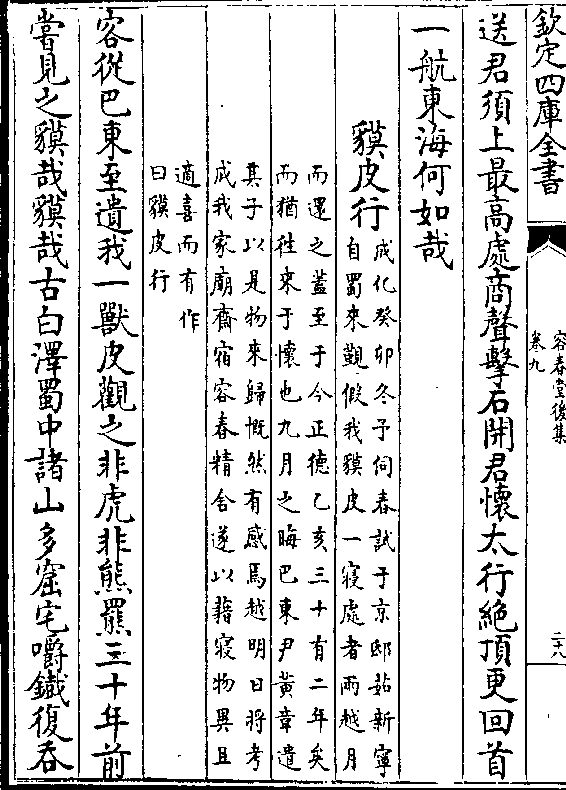 欽定四庫全書
容春堂後集
卷九
二十八
送君須上最高處商聲擊石開君懷太行絶頂更回首
一航東海何如哉
貘皮行
成化癸卯冬予伺春試于京邸姑新寧
自蜀來覲假我貘皮一寢處者兩越月
而還之蓋至于今正德乙亥三十有二年矣
而猶徃來于懷也九月之晦巴東尹黄章遣
其子以是物來歸慨然有感焉越明日將考
成我家廟齋宿容春精舍遂以藉寢物異且
適喜而有作
曰貘皮行
客從巴東至遺我一獸皮觀之非虎非熊羆三十年前
嘗見之貘哉貘哉古白澤蜀中諸山多窟宅嚼鐵復吞